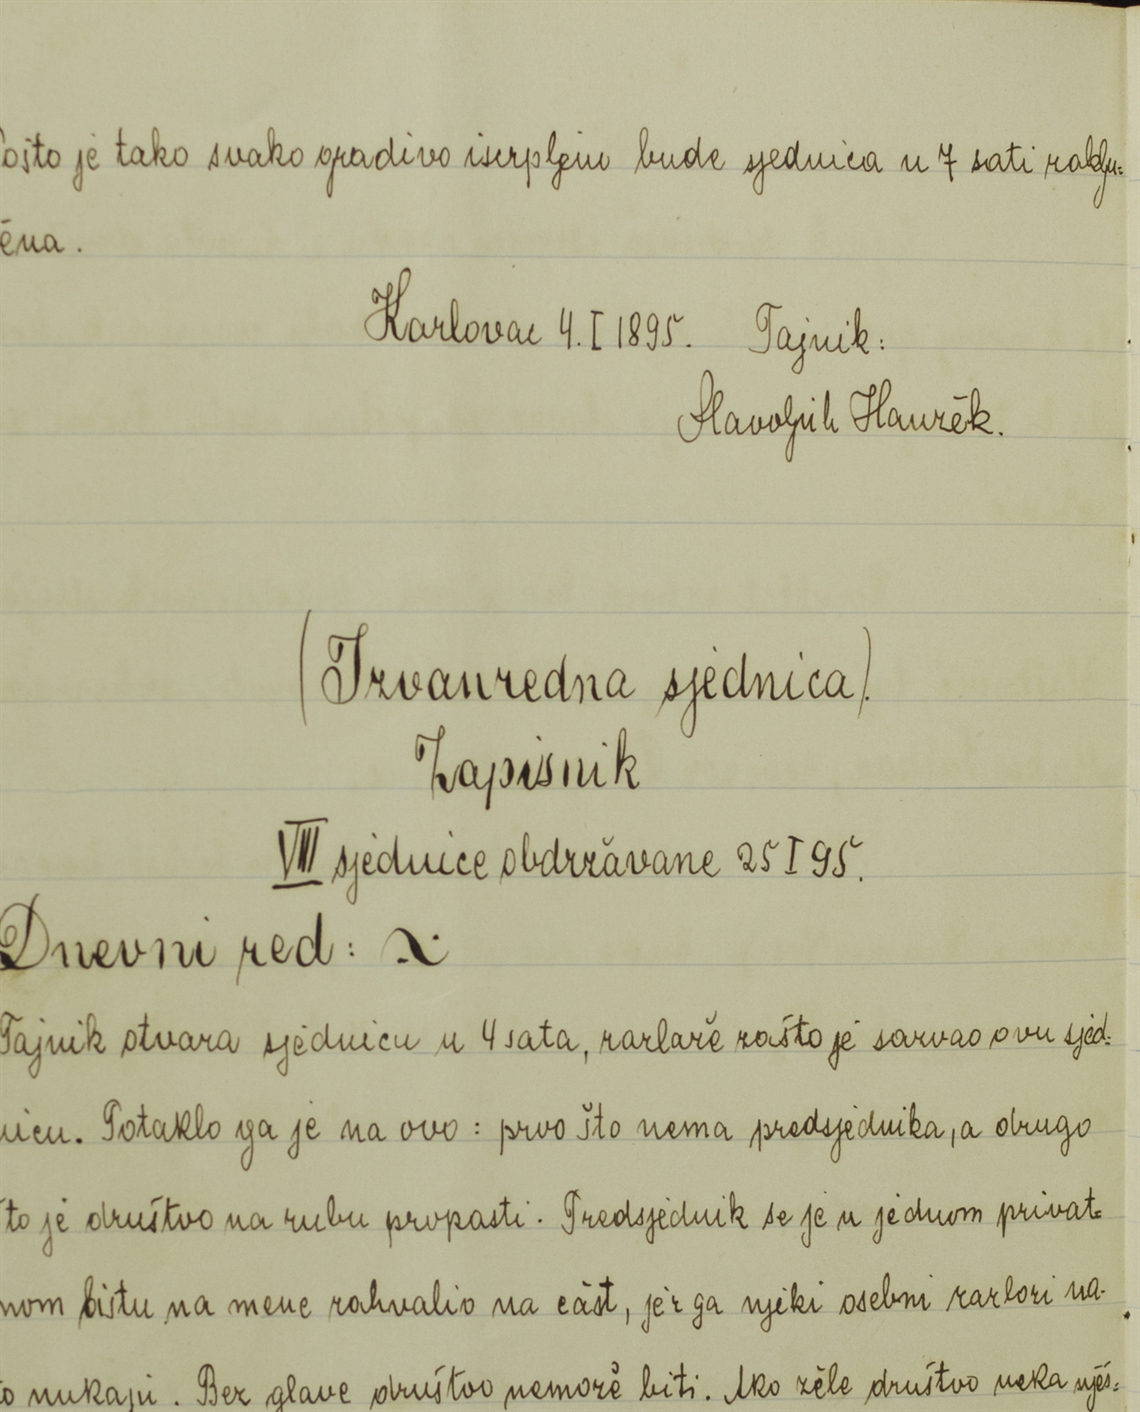 Pošto je tako svako gradivo iscrpljeno bude sjednica u 7 sati zaklju=
čena.
Karlovac 4. I 1895. Tajnik:
Slavoljub Hauzěk.
(Izvanredna sjednica).
Zapisnik
VIII sjednice obdržavane 25 I 95.
Dnevni red:
Tajnik otvara sjednicu u 4 sata, razlaže zašto je sazvao ovu sjed=
nicu. Potaklo ga je na ovo: prvo što nema predsjednika, a drugo
što je društvo na rubu propasti. Predsjednik se je u jednom privat=
nom listu na mene zahvalio na čast, jer ga njeki osebni razlozi na-
to nukaju. Bez glave društvo nemože biti. Ako žele društvo neka nješ=